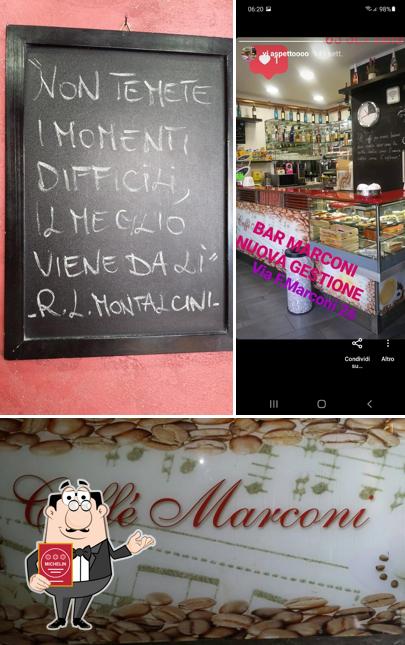 "NON TEMETE
I MOMENTI
DIFFICILI,
IL MEGLIO
VIENE DA LÌ"
-R.L. MONTALCINI-
06:20
98%
vi aspettoooo
BAR MARCONI
NUOVA GESTIONE
Condividi
su...
Altro
Caffé Marconi
MICHELIN